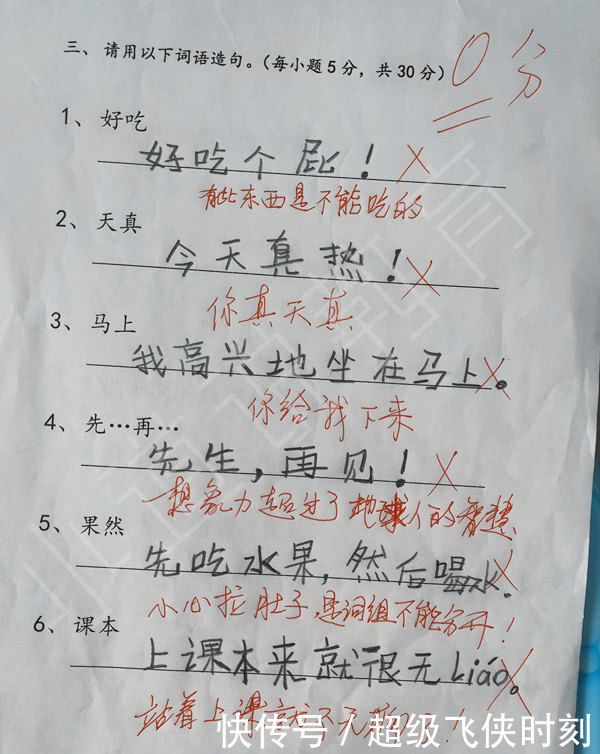 三、请用以下词语造句。(每小题5分，共30分)
0分
1、好吃
好吃个屁！
有些东西是不能吃的
2、天真
今天真热！
你真天真
3、马上
我高兴地坐在马上。
你给我下来
4、先…再…
先生，再见！
想象力超过了地球人的智慧
5、果然
先吃水果，然后喝水.
小心拉肚子,是词组不能分开！
6、课本
上课本来就很无liáo。
站着上课就不无
快传号／超级飞侠时刻